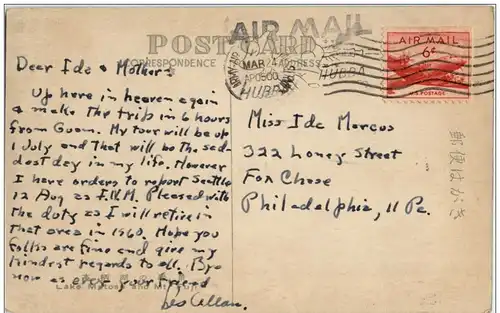 AIR MAIL
POST CARD
CORRESPONDENCE
ADDRESS
MAR 24
APO 500
HUBBA
HUBBA
AIR MAIL
6¢
U.S. POSTAGE
Dear Ide & Mother:
Up here in heaven again
& make the trip in 6 hours
from Guam. My tour will be up
1 July and that will be the sad-
dest day in my life. However
I have orders to report Seattle
12 Aug as I.N.M. Pleased with
the duty as I will retire in
that area in 1960. Hope you
folks are fine and give my
kindest regards to all. Bye
now as ever your friend
Les Callan.
Miss Ide Marcus
322 Loney Street
Fox Chase
Philadelphia, 11 Pa.
郵便はがき
Lake Motosu and Mt. Fuji